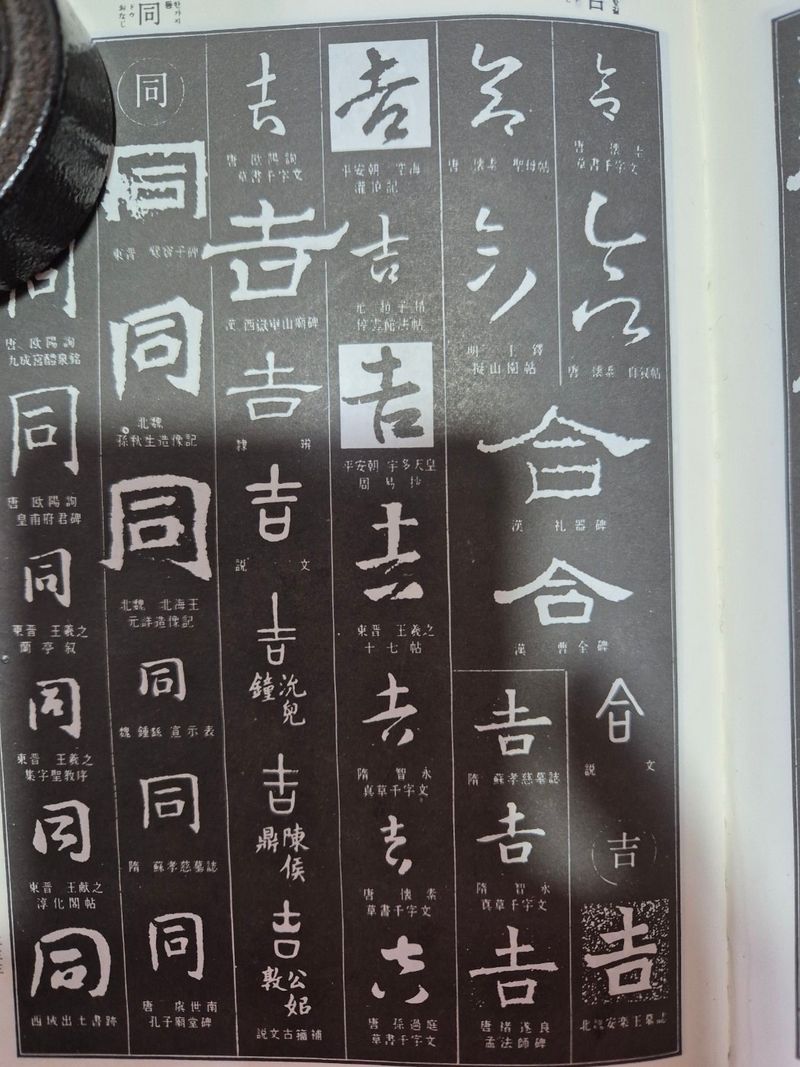 合
唐 懐素
草書千字文
合
唐 懐素 自叙帖
合
唐 懐素 聖母帖
合
明 王鐸
擬山園帖
合
漢 礼器碑
合
漢 曹全碑
合
説文
吉
吉
北魏安楽王墓誌
吉
隋 蘇孝慈墓誌
吉
隋 智永
真草千字文
吉
唐 褚遂良
孟法師碑
吉
平安朝 空海
灌頂記
吉
元 趙子昂
停雲館法帖
吉
平安朝 宇多天皇
周易抄
吉
東晋 王羲之
十七帖
吉
隋 智永
真草千字文
吉
唐 懐素
草書千字文
吉
唐 孫過庭
草書千字文
吉
唐 欧陽詢
草書千字文
吉
漢 西嶽華山廟碑
吉
隷辨
吉
説文
吉
沇兒
鐘
吉
陳侯
鼎
吉
公姞
敦
説文古籀補
同
同
東晋 爨宝子碑
同
北魏
孫秋生造像記
同
北魏 北海王
元詳造像記
同
魏 鍾繇 宣示表
同
隋 蘇孝慈墓誌
同
唐 虞世南
孔子廟堂碑
同
唐 欧陽詢
九成宮醴泉銘
同
唐 欧陽詢
皇甫府君碑
同
東晋 王羲之
蘭亭叙
同
東晋 王羲之
集字聖教序
同
東晋 王献之
淳化閣帖
同
西域出土書跡
同
ドウ
おなじ
吉